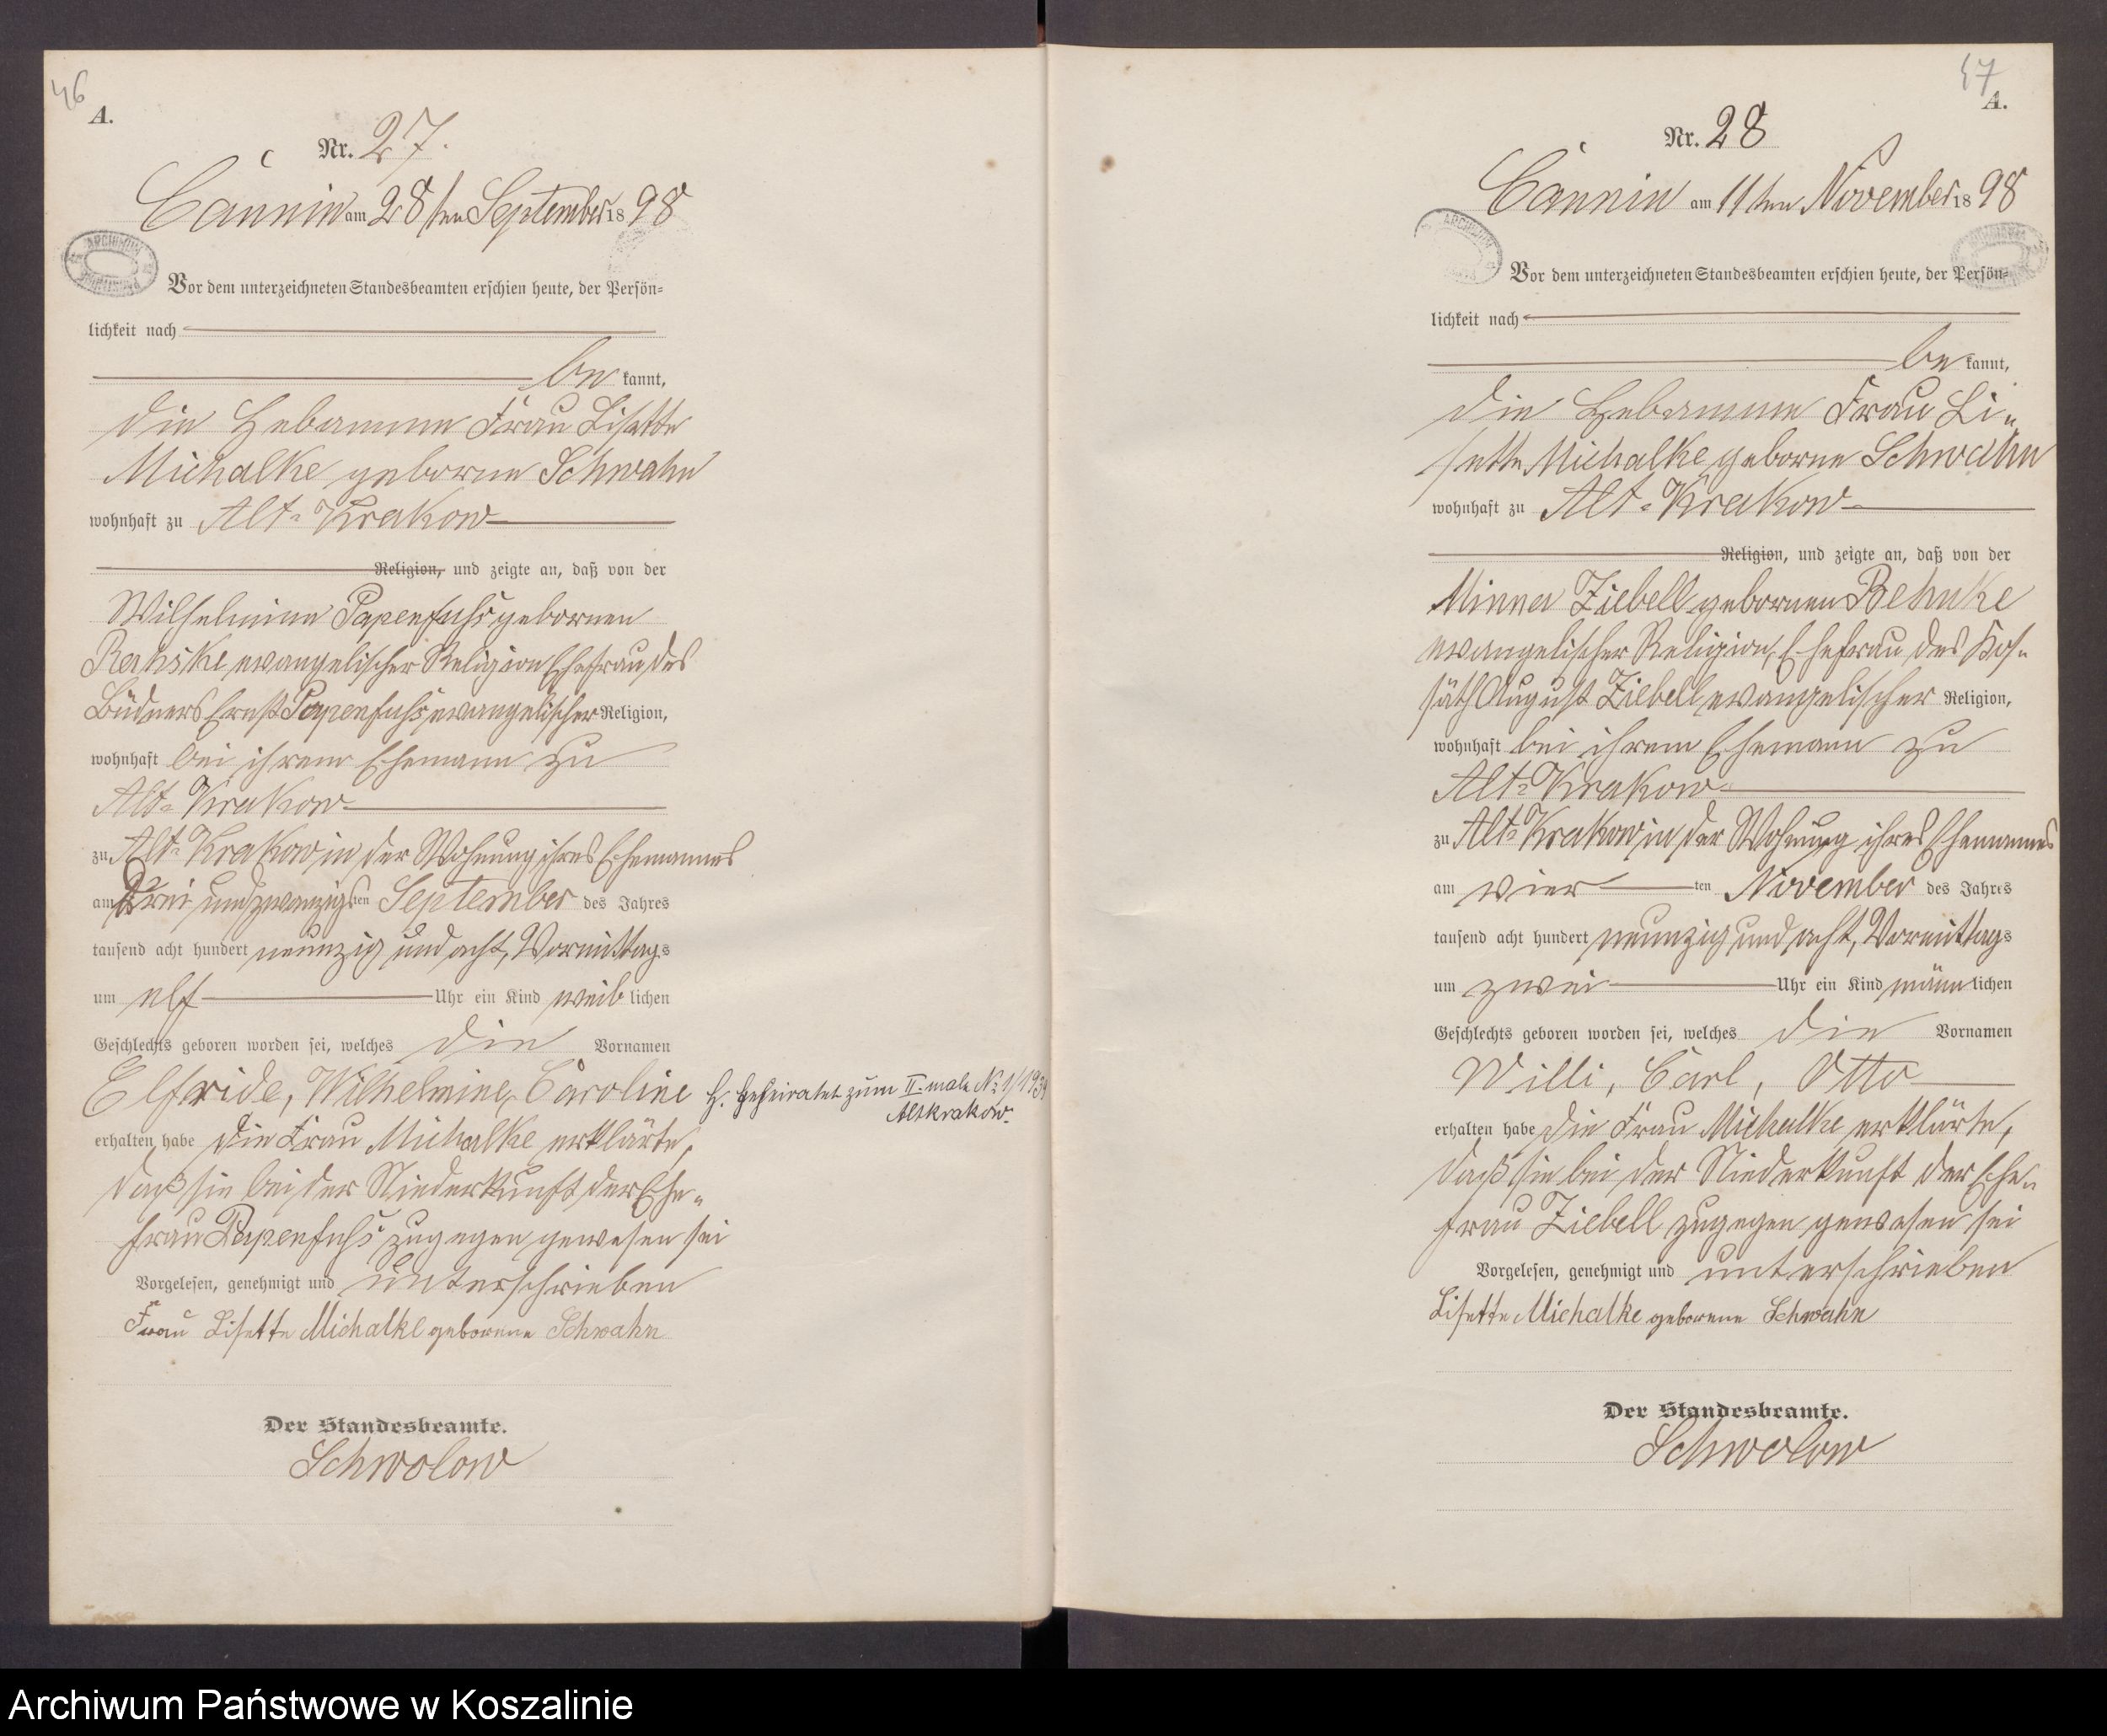 46
A.
Nr. 27.
Cannin am 28ten September 1898
ARCHIWUM
Vor dem unterzeichneten Standesbeamten erschien heute, der Persön=
lichkeit nach
be kannt,
die Hebamme Frau Lisette
Michalke geborne Schwahn
wohnhaft zu Alt-Krakow
Religion, und zeigte an, daß von der
Wilhelmine Papenfuhs gebornen
evangelischer Religion Ehefrau des
Büdners Ernst Papenfuhs evangelischer Religion,
wohnhaft bei ihrem Ehemann zu
Alt-Krakow
zu Alt-Krakow in der Wohnung ihres Ehemannes
am Drei und zwanzigsten September des Jahres
tausend acht hundert neunzig und acht, Vormittags
um elf Uhr ein Kind weiblichen
Geschlechts geboren worden sei, welches die Vornamen
Elfride, Wilhelmine, Caroline
geheiratet zum II. male No 1/1934
Altkrakow.
erhalten habe die Frau Michalke erklärte,
daß sie bei der Niederkunft der Ehe-
frau Papenfuhs zugegen gewesen sei
Vorgelesen, genehmigt und unterschrieben
Frau Lisette Michalke geborene Schwahn
Der Standesbeamte.
Schwolow
47
A.
Nr. 28
Cannin am 11ten November 1898
ARCHIWUM
Vor dem unterzeichneten Standesbeamten erschien heute, der Persön=
lichkeit nach
be kannt,
die Hebamme Frau Li-
sette Michalke geborne Schwahn
wohnhaft zu Alt-Krakow
Religion, und zeigte an, daß von der
Minna Ziebell gebornen Behnke
evangelischer Religion, Ehefrau des Kos-
säth August Ziebell evangelischer Religion,
wohnhaft bei ihrem Ehemann zu
Alt-Krakow
zu Alt-Krakow in der Wohnung ihres Ehemannes
am vierten November des Jahres
tausend acht hundert neunzig und acht, Vormittags
um zwei Uhr ein Kind männlichen
Geschlechts geboren worden sei, welches die Vornamen
Willi, Carl, Otto
erhalten habe die Frau Michalke erklärte,
daß sie bei der Niederkunft der Ehe-
frau Ziebell zugegen gewesen sei
Vorgelesen, genehmigt und unterschrieben
Lisette Michalke geborene Schwahn
Der Standesbeamte.
Schwolow
Archiwum Państwowe w Koszalinie